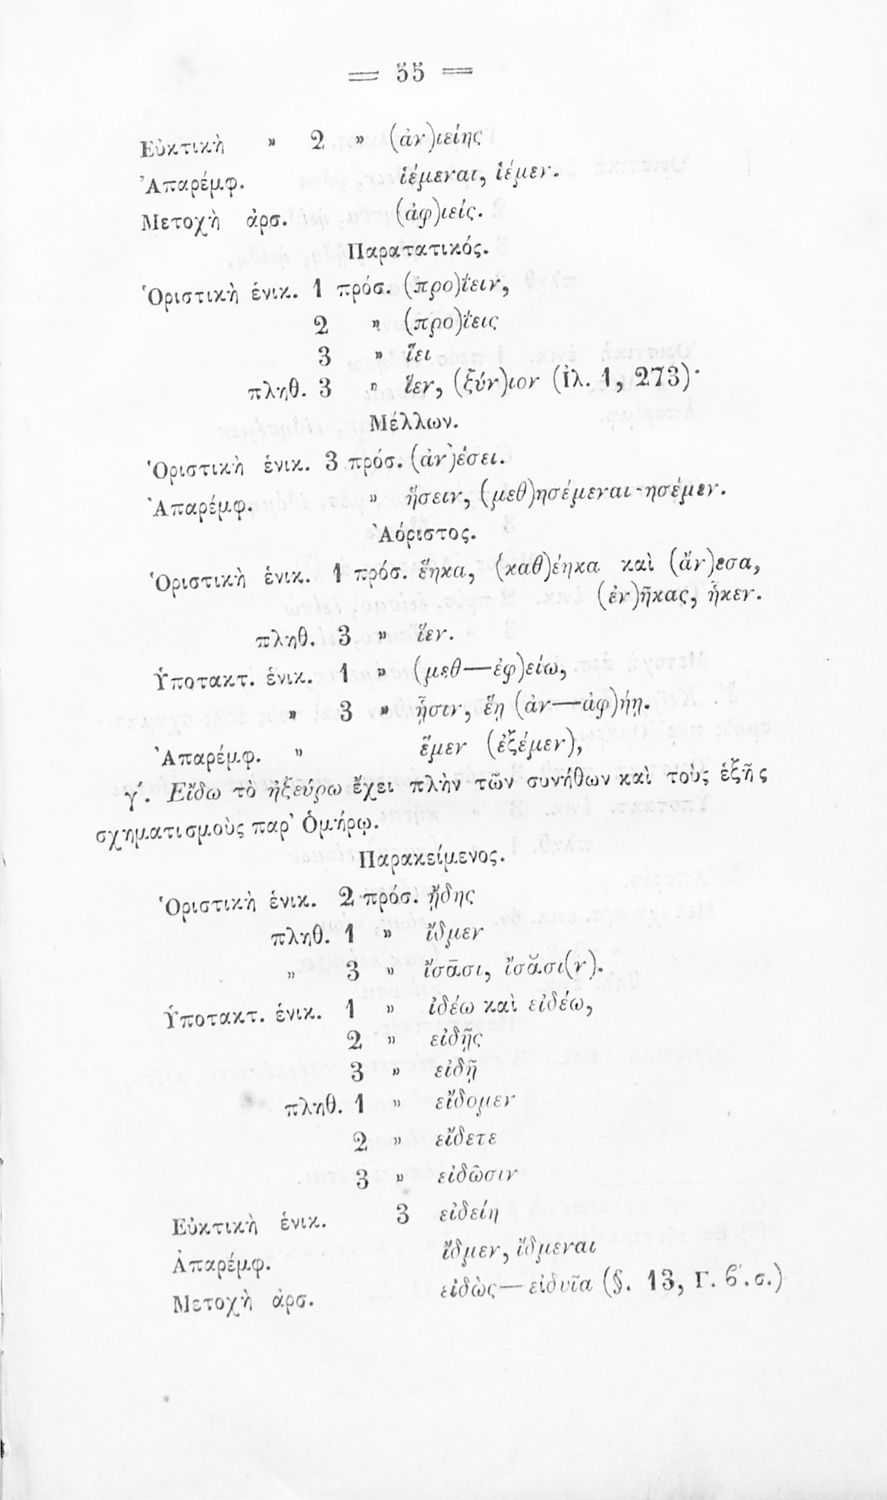 = 55 =
Εὐκτικὴ » 2 » (ἀν)ιείης
Ἀπαρέμφ. ἱέμεναι, ἱέμεν.
Μετοχὴ ἀρσ. (ἀφ)ιείς.
Παρατατικός.
Ὁριστικὴ ἑνικ. 1 πρόσ. (προ)ΐειν,
2 » (προ)ΐεις
3 » ἵει
πληθ. 3 » ἵεν, (ξύν)ιον (Ἰλ. 1, 273)·
Μέλλων.
Ὁριστικὴ ἑνικ. 3 πρόσ. (ἀν)έσει.
Ἀπαρέμφ. » ἥσειν, (μεθ)ησέμεναι-ησέμεν.
Ἀόριστος.
Ὁριστικὴ ἑνικ. 1 πρόσ. ἕηκα, (καθ)έηκα καὶ (ἄν)εσα,
(ἐν)ῆκας, ἧκεν.
πληθ. 3 » ἵεν.
Ὑποτακτ. ἑνικ. 1 » (μεθ—ἐφ)είω,
» 3 » ᾗσιν, ἕῃ (ἀν—ἀφ)ήῃ.
Ἀπαρέμφ. » ἕμεν (ἐξέμεν),
γ΄. Εἴδω τὸ ἠξεύρω ἔχει πλὴν τῶν συνήθων καὶ τοὺς ἑξῆς
σχηματισμοὺς παρ' Ὁμήρῳ.
Παρακείμενος.
Ὁριστικὴ ἑνικ. 2 πρόσ. ᾔδης
πληθ. 1 » ἴδμεν
» 3 » ἴσᾱσι, ἴσᾰσι(ν).
Ὑποτακτ. ἑνικ. 1 » ἰδέω καὶ εἰδέω,
2 » εἰδῇς
3 » εἰδῇ
πληθ. 1 » εἴδομεν
2 » εἴδετε
3 » εἰδῶσιν
Εὐκτικὴ ἑνικ. 3 εἰδείη
Ἀπαρέμφ. ἴδμεν, ἴδμεναι
Μετοχὴ ἀρσ. εἰδὼς—εἰδυῖα (§. 13, Γ. 6΄.σ.)